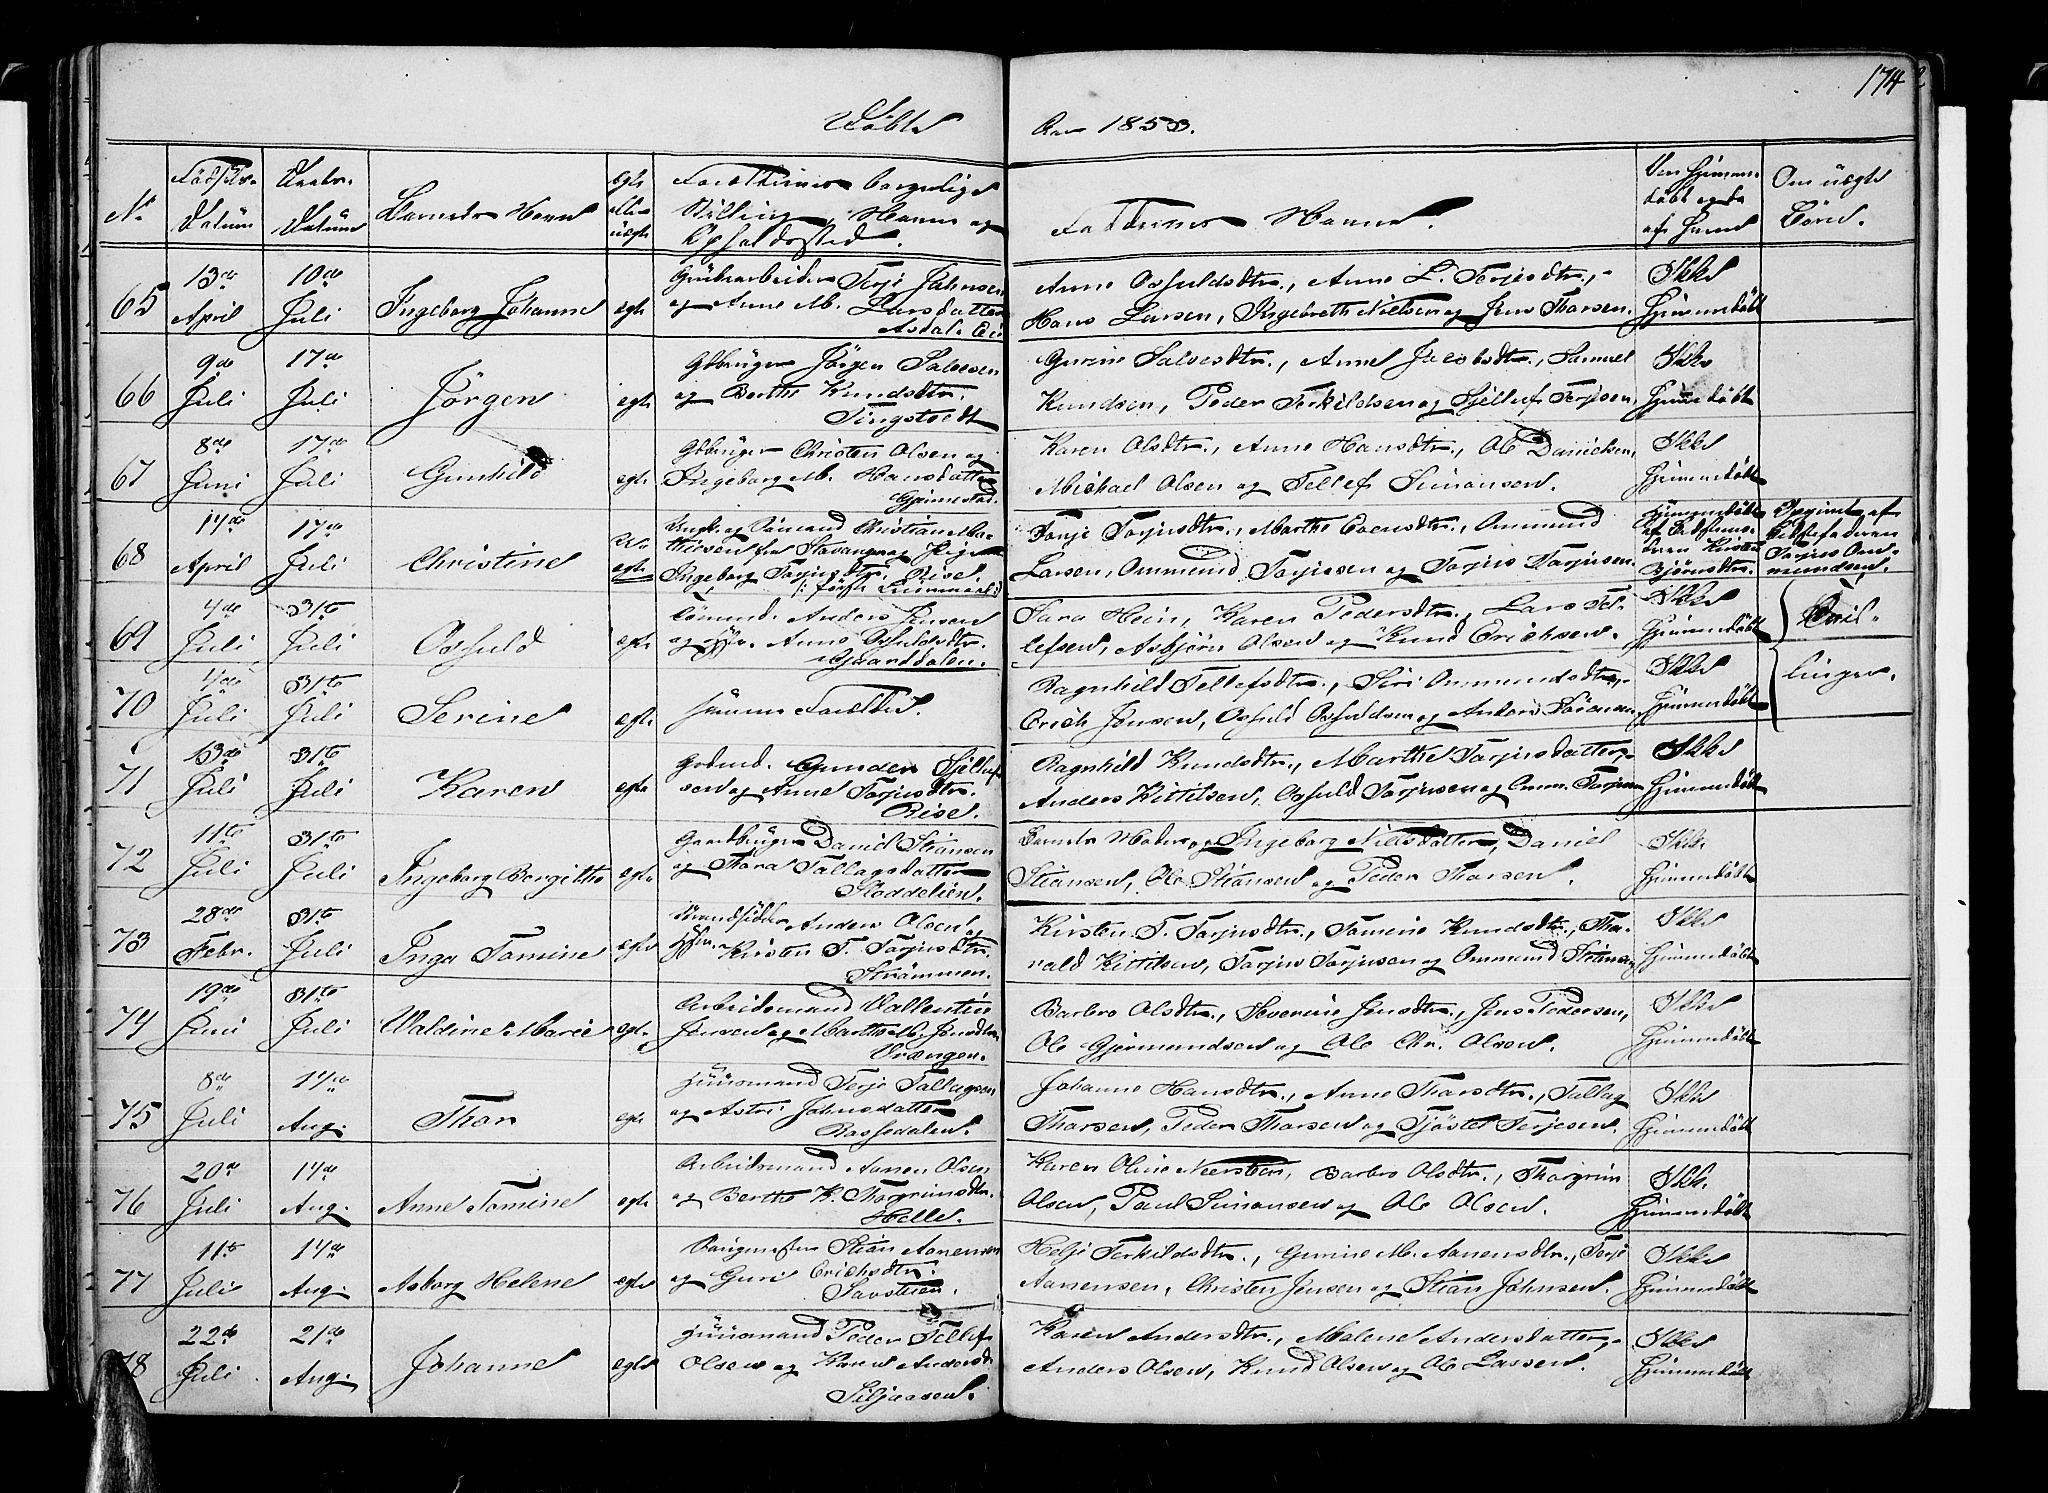 174
Døbte
Aar 1853.
No
Fødsels-
Datum
Daabs-
Datum
Barnets Navn
egte
eller
uegte
Forældrenes borgerlige
Stilling, Navne og
Opholdssted.
Faddernes Navne.
Om hjemme-
døbt og da
af hvem
Om uegte
Børn.
65
13de
April
10de
Juli
Ingeborg Johanne
egte
Grubearbeider Terje Johnsen
og Anne M. Larsdatter
Asdal Eie
Anne Osfuldsdtr., Anne L. Terjesdtr.,
Hans Larsen, Ingebreth Nielsen og Jens Thorsen.
Ikke
hjemmedøbt
66
9de
Juli
17de
Juli
Jörgen
egte
Gdbruger Jörgen Salvesen
og Berthe Knudsdtr.
Tingstvedt
Gurine Salvesdtr., Anne Jacobsdtr., Samuel
Knudsen, Peder Terkildsen og Sjellef Terjesen,
Ikke
hjemmedøbt
67
8de
Juni
17de
Juli
Gunhild
egte
Gdbruger Christen Olsen og
Ingeborg M. Hansdatter
Gjennestad.
Karen Olsdtr., Anne Hansdtr., Ole Danielsen,
Michael Olsen og Tellef Simonsen.
Ikke
hjemmedøbt
68
14de
April
17de
Juli
Christine
U-
egte
Ungk. og Sömand Christian Ma-
thiesen fra Stavanger og Pigen
Ingeborg Torjusdtr. Risel.
Torje Torjusdtr., Marthe Evensdtr., Ommund
Larsen, Ommund Torjusen og Torjus Torjusen.
hjemmedøbt
af Jordemo-
deren Kirsten
Björnsdtr.
Opgivet af
Bedstefaderen
Torjus Om-
mundsen.
69
4de
Juli
31te
Juli
Osfuld
egte
Sömand. Anders Jensen
og Hstr. Anne Osfuldsdtr.
Gaarddalen.
Sara Hein, Karen Pedersdtr., Lars Tel-
lefsen, Asbjörn Olsen og Knud Erichsen.
Ikke
hjemmedøbt
Tvil-
70
4de
Juli
31te
Juli
Serine
egte
samme Forældre.
Ragnhild Tellefsdtr., Siri Ommundsdtr.,
Erich Jensen, Osfuld Osfuldsen og Anders Sörensen,
Ikke
hjemmedøbt
linger.
71
13de
Juli
31te
Juli
Karen
egte
Gdmd. Gunder Sjellef-
sen og Anne Torjusdtr.
Risel.
Ragnhild Knudsdtr., Marthe Torjusdatter,
Anders Kittilsen, Osfuld Torjusen og Omm. Torjusen
Ikke
hjemmedøbt
72
11te
Juli
31te
Juli
Ingeborg Bergithe
egte
Gaardbruger David Stiansen
og Thora Tallagsdatter
Stoddelien.
Barnets Moder og Ingeborg Nilsdatter, Daniel
Stiansen, Ole Stiansen og Peder Thorsen.
Ikke
hjemmedøbt
73
28de
Febr.
31te
Juli
Inga Tomine
egte
Strandsidder Anders Olsen og
Hstr. Kirsten T. Torjusdtr.
Strömmen.
Kirsten T. Torjusdtr., Tomine Knudsdtr., Tho-
rald Kittilsen, Torjus Torjusen og Ommund Stiansen
Ikke
hjemmedøbt
74
19de
Juni
31te
Juli
Valdine Marie
egte
Arbeidsmand Vallentin
Jensen og Marthe M. Jensdtr.
Vrængen.
Barbro Olsdtr., Severine Jensdtr., Jens Pedersen,
Ole Gjermundsen og Ole Chr. Olsen.
Ikke
hjemmedøbt
75
8de
Juli
14de
Aug.
Thor
egte
Huusmand Terje Tallagsen
og Astri Johnsdatter
Rossedalen.
Johanne Hansdtr., Anne Thorsdtr., Tallag
Thorsen, Peder Thorsen og Tjöstel Terjesen.
Ikke
hjemmedøbt
76
20de
Juli
14de
Aug.
Anne Tomine
egte
Arbeidsmand Aanen Olsen
og Berthe K. Thorgrimsdtr.
Helle.
Karen Oline Neersteen, Barbro Olsdtr., Thorgrim
Olsen, Paul Simonsen og Ole Olsen.
Ikke
hjemmedøbt
77
11te
Juli
14de
Aug.
Asborg Helene
egte
Saugmester Stian Aanensen
og Guri Erichsdtr.
Savstøen.
Helje Terkildsdtr., Gurine M. Aanensdtr., Terje
Aanensen, Christen Jensen og Stian Johnsen.
Ikke
hjemmedøbt
78
22de
Juli
21de
Aug.
Johanne
egte
Huusmand Peder Tellef
Olsen og Karen Andersdtr.
Siljeaasen.
Karen Andersdtr., Malene Andersdatter,
Anders Olsen, Knud Olsen og Ole Lassen.
Ikke
hjemmedøbt